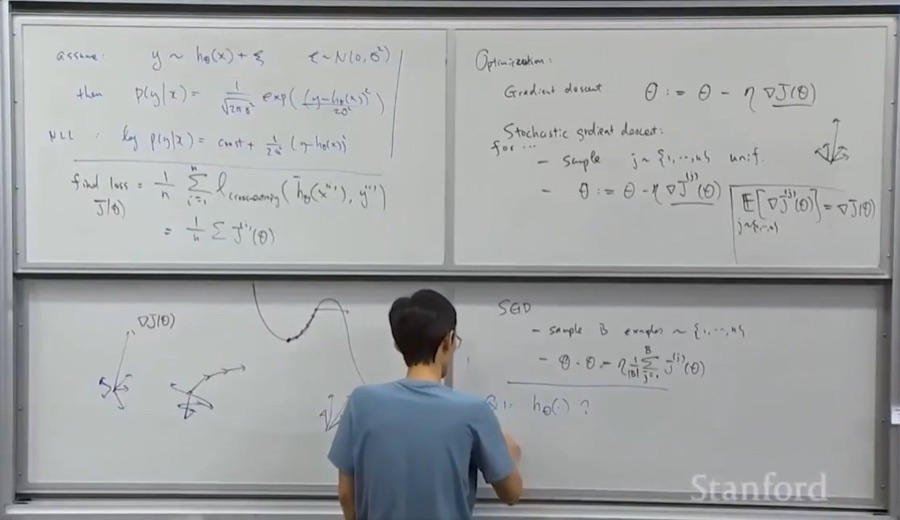 assume: y ~ hθ(x) + ξ ε ~ N(0, σ²)
then p(y|x) = 1/√(2πσ²) exp((y-hθ(x))²/2σ²)
NLL: log p(y|x) = const + 1/2σ² (y-hθ(x))²
find loss = 1/n Σ_{i=1}^{n} ℓ_{crossentropy}(h̄θ(x⁽ⁱ⁾), y⁽ⁱ⁾)
J(θ)
= 1/n Σ J⁽ⁱ⁾(θ)
Optimization:
Gradient descent θ := θ - η ∇J(θ)
Stochastic gradient descent:
for ...
- sample j ~ {1, ..., n} unif.
- θ := θ - η ∇J⁽ʲ⁾(θ)
E[∇J⁽ʲ⁾(θ)] = ∇J(θ)
j~{1,...,n}
∇J(θ)
SGD
- sample B examples ~ {1, ..., n}
- θ - θ - η 1/|B| Σ_{j=1}^{B} J⁽ʲ⁾(θ)
Q1: hθ(·) ?
Stanford